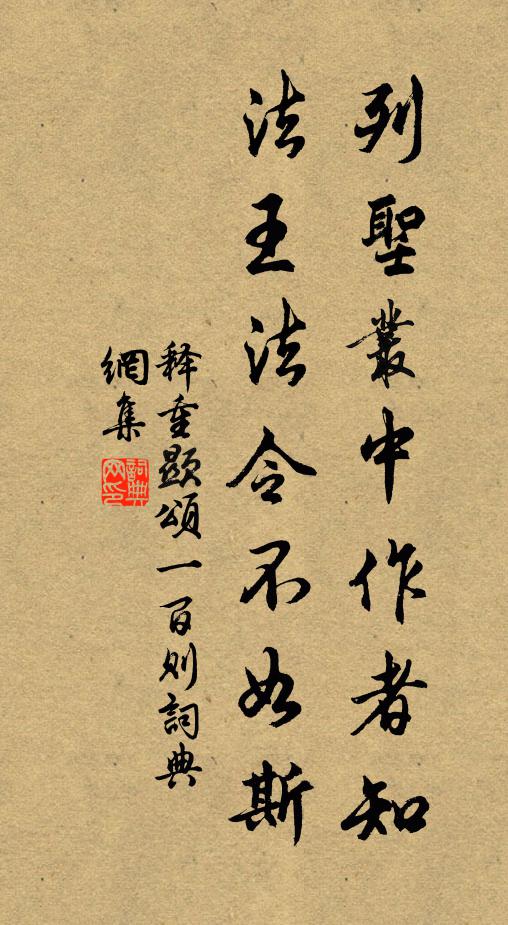 列聖叢中作者知
法王法令不如斯
释重顯頌一百则詞典
網集
詞典網印